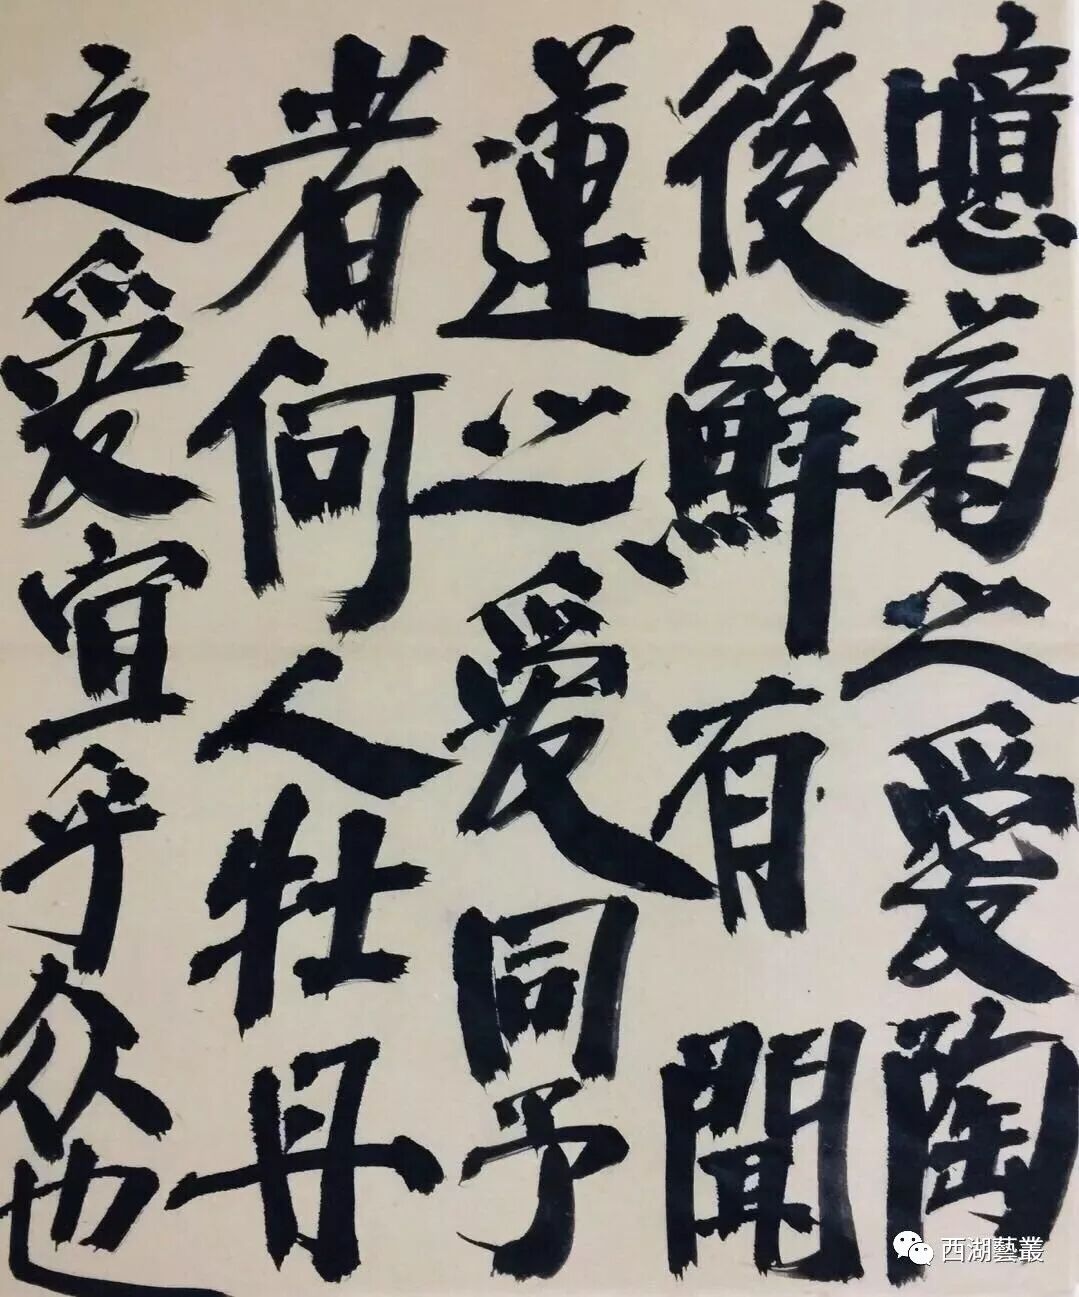 噫菊之愛陶
後鮮有聞
蓮之愛同予
者何人牡丹
之愛宜乎众也
西湖藝叢